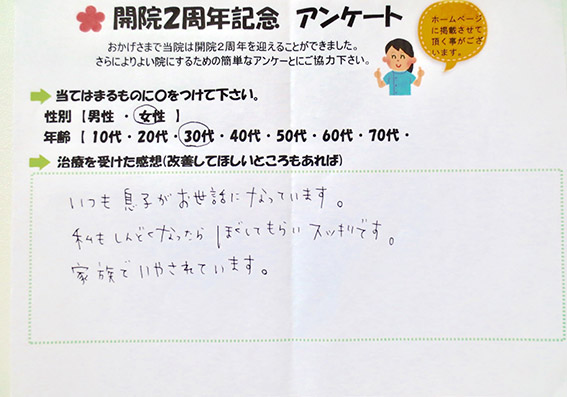 開院2周年記念 アンケート
ホームページに掲載させて頂く事がございます。
おかげさまで当院は開院2周年を迎えることができました。
さらによりよい院にするための簡単なアンケーとにご協力下さい。
当てはまるものに〇をつけて下さい。
性別 【 男性 ・ 女性 】
年齢 【 10代・20代・30代・40代・50代・60代・70代・
治療を受けた感想(改善してほしいところもあれば)
いつも息子がお世話になっています。
私もしんどくなったらほぐしてもらいスッキリです。
家族でいやされています。